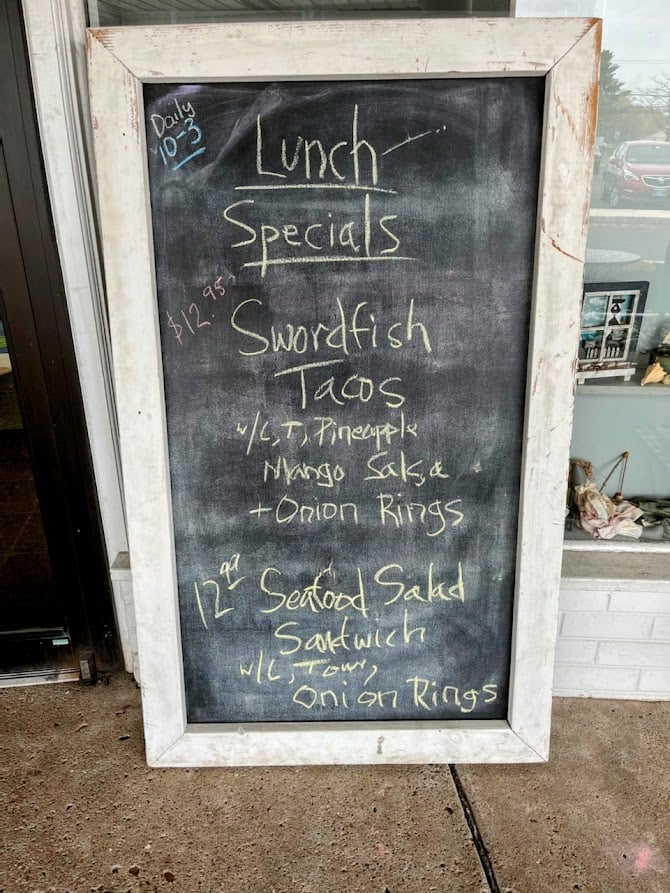 Daily
10-3
Lunch
Specials
$12.95
Swordfish
Tacos
w/L, T, Pineapple
Mango Salsa
+ Onion Rings
12.99 Seafood Salad
Sandwich
w/L, Tom,
Onion Rings